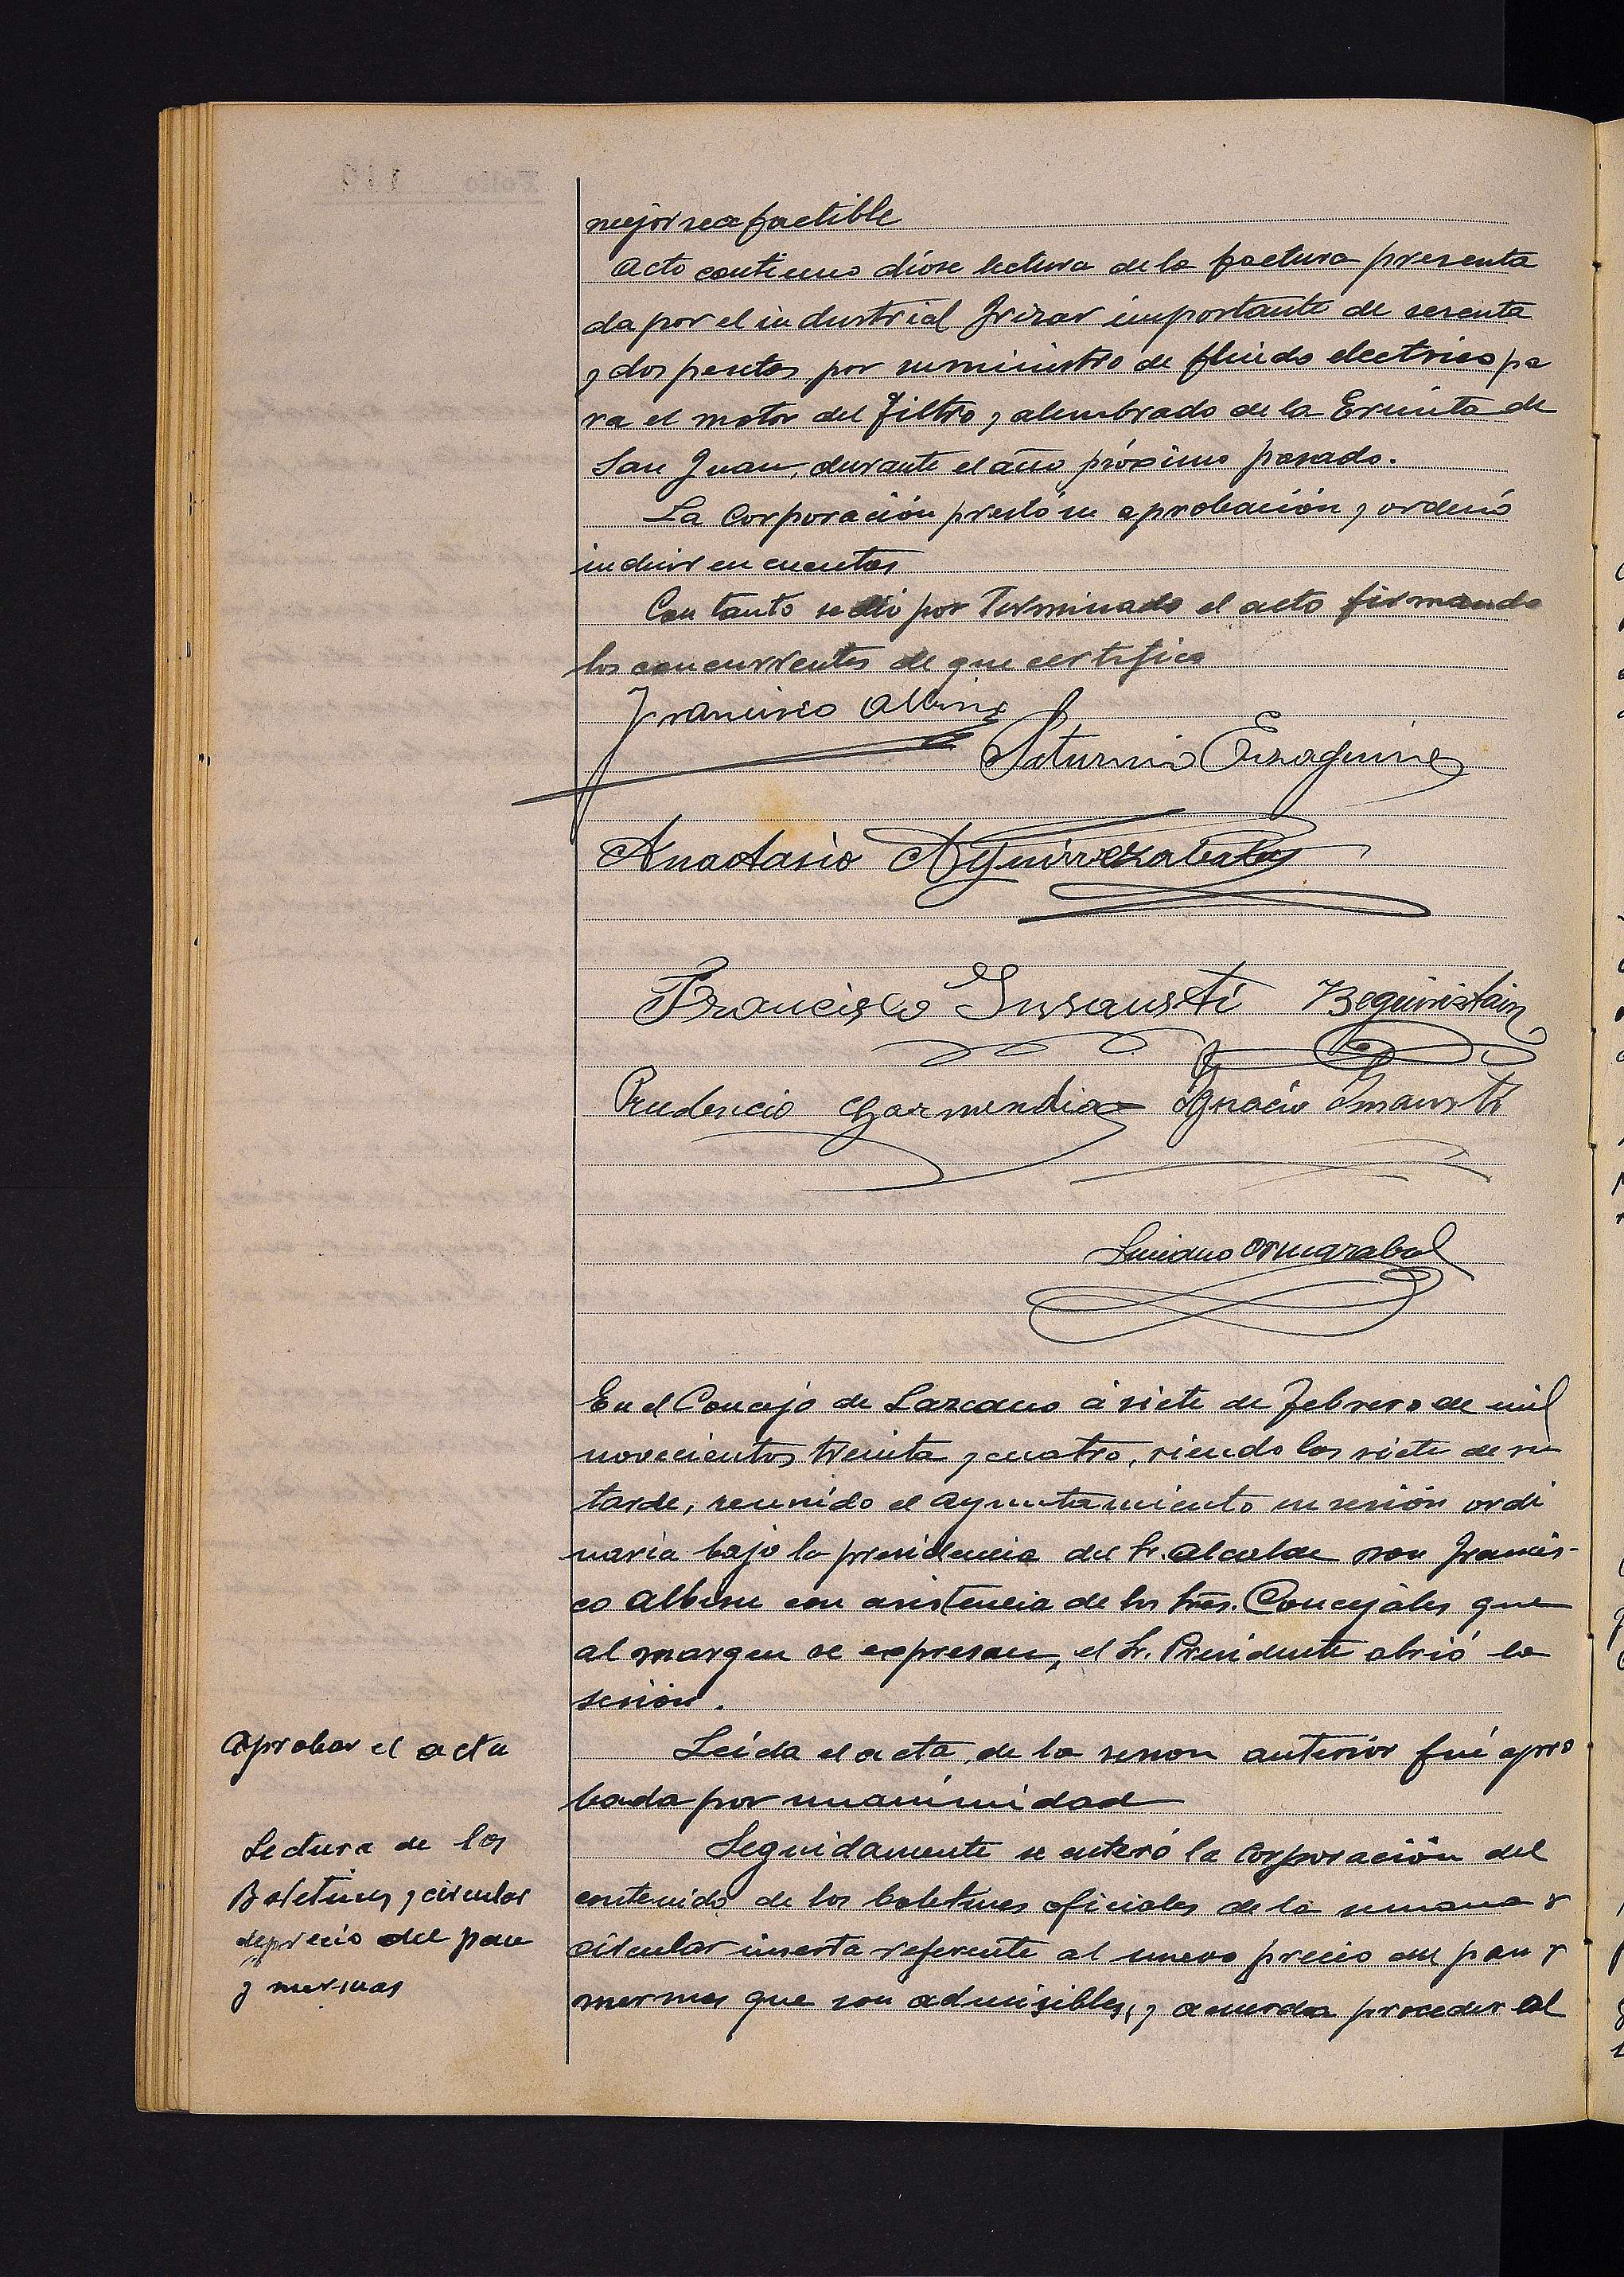 mejor sea factible
Acto continuo dióse lectura de la factura presenta
da por el industrial Irizar importante de sesenta
y dos pesetas por suministro de fluido electrico pa
ra el motor del filtro y alumbrado de la Ermita de
San Juan, durante el año próximo pasado.
La Corporación prestó su aprobación y ordenó
incluir en cuentas
Con tanto se dió por terminado el acto firmando
los concurrentes de que certifico
Francisco Albisu
Saturnino
Anastasio Aguirrezabala
Francisco Insausti Beguiristain
Prudencio Garmendia Ignacio Insausti
Luciano
En el Concejo de Lazcano á siete de febrero de mil
novecientos treinta y cuatro, siendo las siete de su
tarde, reunido el ayuntamiento en sesión ordi
naria bajo la presidencia del Sr. Alcalde Don Francis-
co Albisu con asistencia de los Sres. Concejales que
al margen se expresan, el Sr. Presidente abrió la
sesión.
Aprobar el acta
Leída el acta de la sesion anterior fué apro
bada por unanimidad
Lectura de los
Boletines y circular
de precio del pan
y mermas
Seguidamente se enteró la Corporación del
contenido de los boletines oficiales de la semana y
circular inserta referente al nuevo precio del pan y
mermas que son admisibles, y acuerdan proceder al